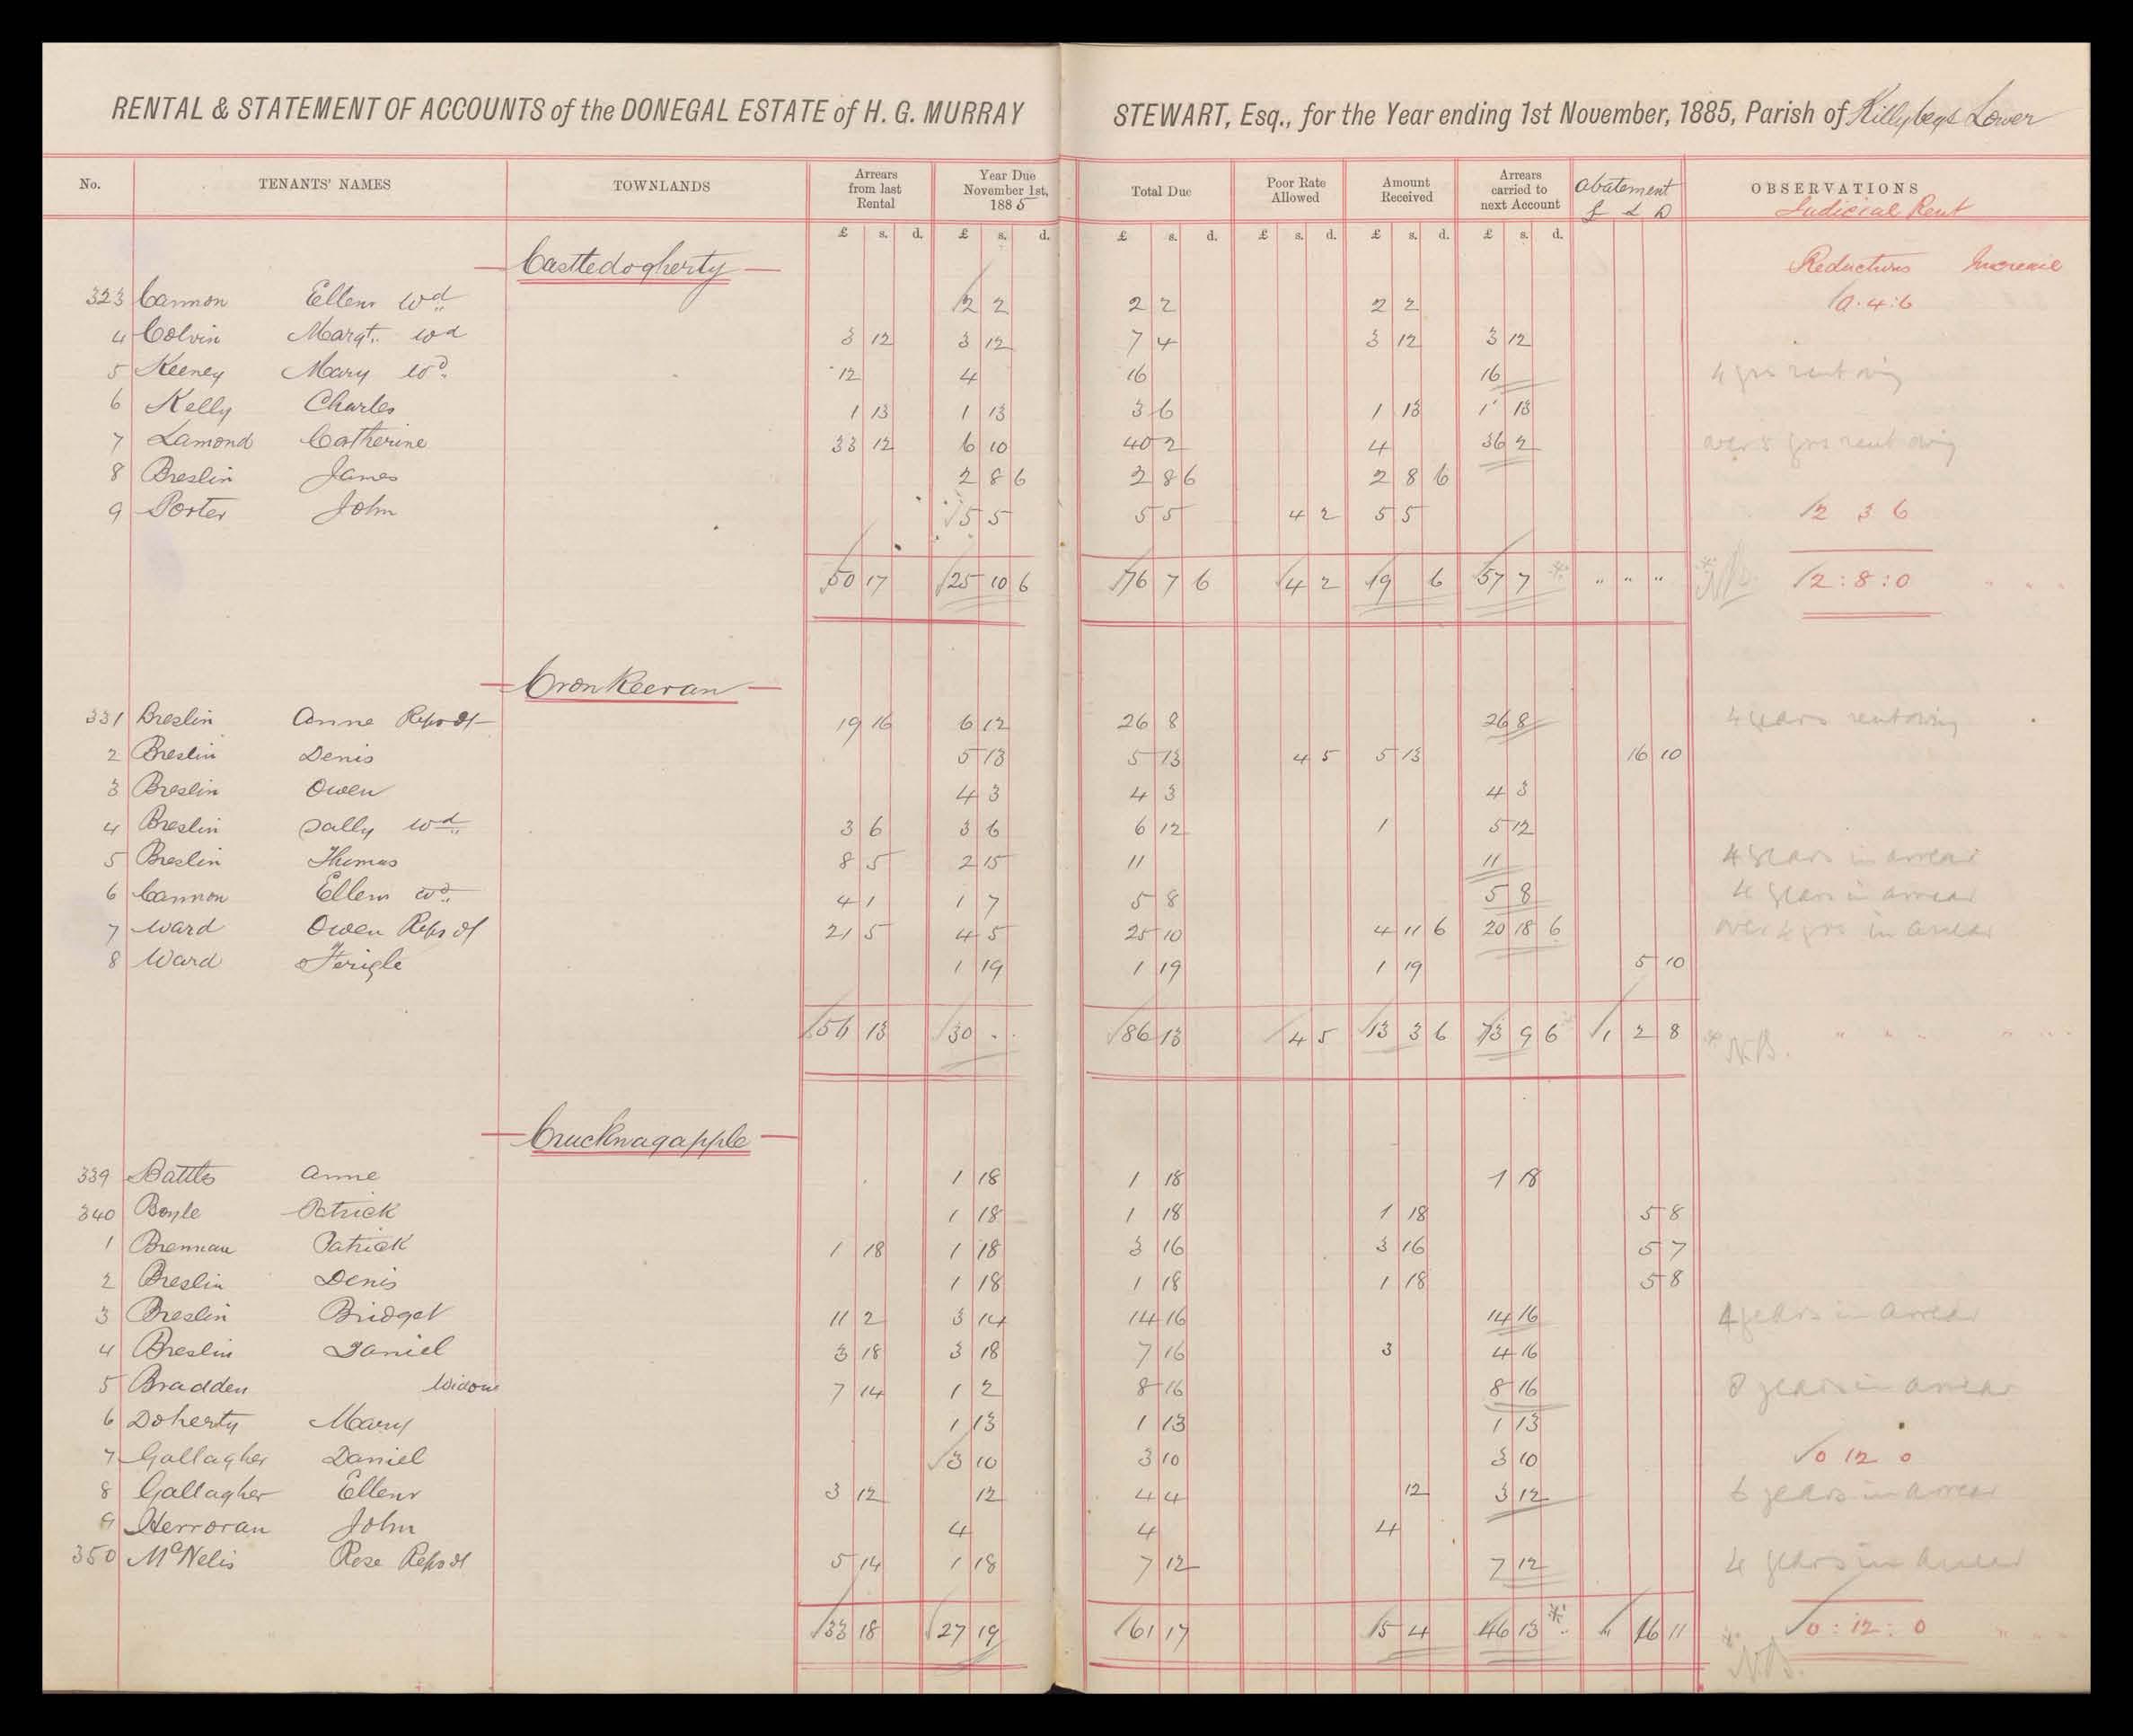 RENTAL & STATEMENT OF ACCOUNTS of the DONEGAL ESTATE of H. G. MURRAY STEWART, Esq., for the Year ending 1st November, 1885, Parish of Killybegs Lower
No. TENANTS' NAMES TOWNLANDS Arrears from last Rental Year Due November 1st, 1885 Total Due Poor Rate Allowed Amount Received Arrears carried to next Account Abatement £ s D OBSERVATIONS Judicial Rent
£ s. d. £ s. d. £ s. d. £ s. d. £ s. d. £ s. d.
Reductions Increase
Castledogherty
323 Cannon Ellen Wd 2 2 2 2 2 2 0.4:6
4 Colvin Margt. Wd 3 12 3 12 7 4 3 12 3 12
5 Keeney Mary Wd. 12 4 16 16 4 yrs rent owing
6 Kelly Charles 1 13 1 13 3 6 1 13 1 13
7 Lamond Catherine 33 12 6 10 40 2 4 36 2 over 5 yrs rent owing
8 Breslin James 2 8 6 2 8 6 2 8 6
9 Porter John 5 5 5 5 4 2 5 5 2 3 6
50 17 25 10 6 76 7 6 4 2 19 6 57 7 * " " " * N.B. 2:8:0 " " "
Cronkeeran
331 Breslin Anne Reps of 19 16 6 12 26 8 26 8 4 years rent owing
2 Breslin Denis 5 13 5 13 4 5 5 13 16 10
3 Breslin Owen 4 3 4 3 4 3
4 Breslin Sally Wd 3 6 3 6 6 12 1 5 12
5 Breslin Thomas 8 5 2 15 11 11 4 years in arrear
6 Cannon Ellen Wd. 4 1 1 7 5 8 5 8 4 years in arrear
7 Ward Owen Reps of 21 5 4 5 25 10 4 11 6 20 18 6 over 4 yrs in arrear
8 Ward Ferigle 1 19 1 19 1 19 5 10
56 13 30 . . 86 13 4 5 13 3 6 73 9 6 1 2 8 * N.B. " " " " " "
Crucknagapple
339 Battles Anne 1 18 1 18 1 18
340 Boyle Patrick 1 18 1 18 1 18 5 8
1 Brennan Patrick 1 18 1 18 3 16 3 16 5 7
2 Breslin Denis 1 18 1 18 1 18 5 8
3 Breslin Bridget 11 2 3 14 14 16 14 16 4 years in arrear
4 Breslin Daniel 3 18 3 18 7 16 3 4 16
5 Bradden Widow 7 14 1 2 8 16 8 16 8 years in arrear
6 Doherty Mary 1 13 1 13 1 13
7 Gallagher Daniel 3 10 3 10 3 10 0 12 0
8 Gallagher Ellen 3 12 12 4 4 12 3 12 6 years in arrear
9 Herroran John 4 4 4
350 McNelis Rose Reps of 5 14 1 18 7 12 7 12 4 years in arrear
33 18 27 19 61 17 15 4 46 13 * " 16 11 * N.B. 0:12:0 " " "